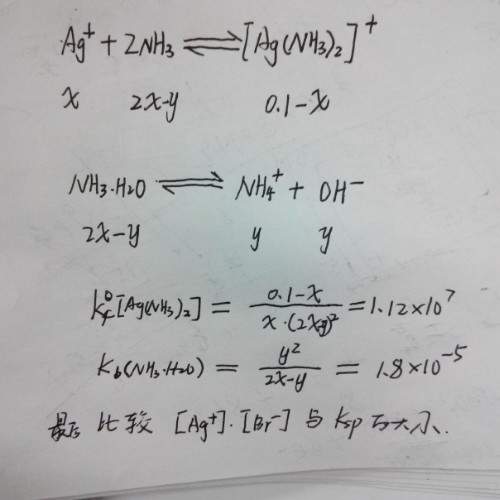 Ag⁺ + 2NH3 ⇌ [Ag(NH3)2]⁺
x 2x-y 0.1-x
NH3·H2O ⇌ NH4⁺ + OH⁻
2x-y y y
K_f^θ[Ag(NH3)2] = (0.1-x)/(x·(2x-y)²) = 1.12×10⁷
K_b(NH3·H2O) = y²/(2x-y) = 1.8×10⁻⁵
最后 比较 [Ag⁺]·[Br⁻] 与 Ksp 的大小.